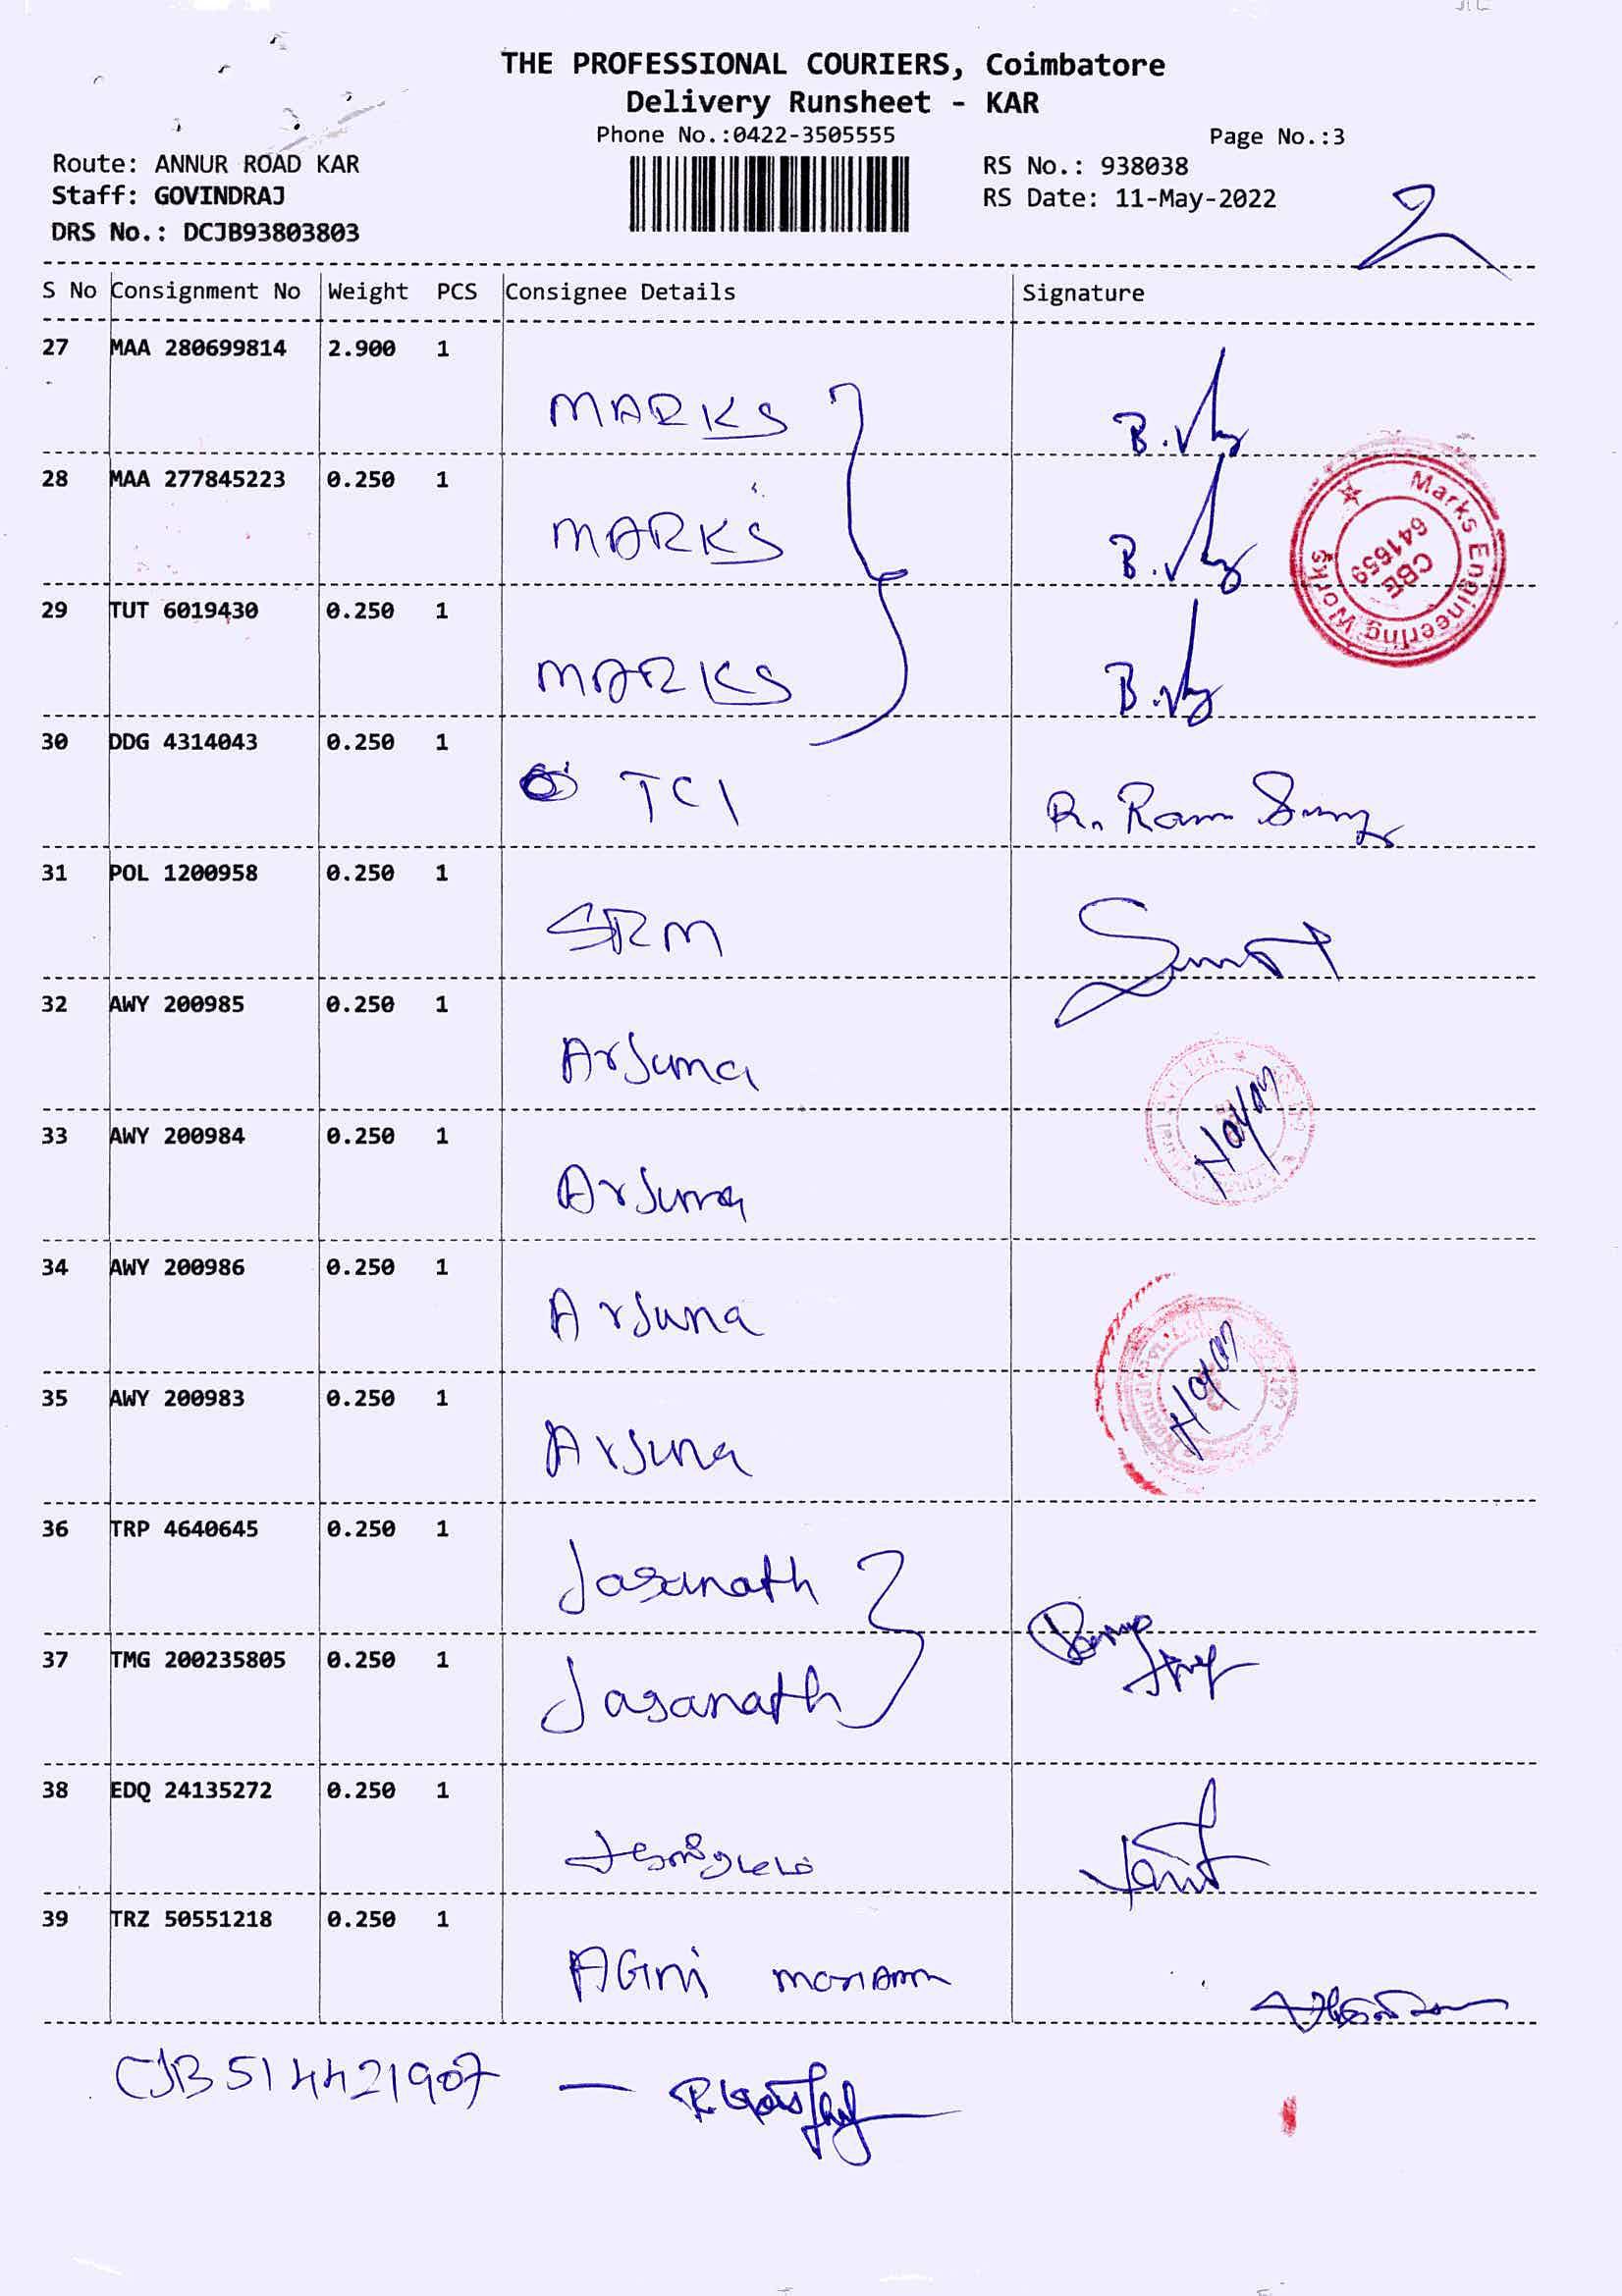 THE PROFESSIONAL COURIERS, Coimbatore
Delivery Runsheet - KAR
Phone No.:0422-3505555
Page No.:3
Route: ANNUR ROAD KAR
RS No.: 938038
Staff: GOVINDRAJ
RS Date: 11-May-2022
DRS No.: DCJB93803803
S No Consignment No Weight PCS Consignee Details Signature
27 MAA 280699814 2.900 1
MARKS
28 MAA 277845223 0.250 1
MARKS
Marks Engineering Works
CBE
641659
29 TUT 6019430 0.250 1
MARKS
30 DDG 4314043 0.250 1
TCI R. Ram
31 POL 1200958 0.250 1
SRM
32 AWY 200985 0.250 1
Arjuna
33 AWY 200984 0.250 1
Arjuna
34 AWY 200986 0.250 1
Arjuna
35 AWY 200983 0.250 1
Arjuna
36 TRP 4640645 0.250 1
Jaganath
37 TMG 200235805 0.250 1
Jaganath
38 EDQ 24135272 0.250 1
39 TRZ 50551218 0.250 1
AGni
CJB 514421907 -